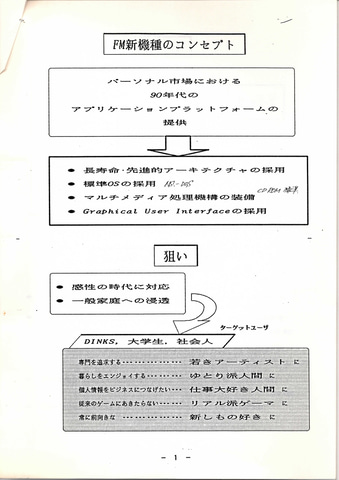 FM新機種のコンセプト
パーソナル市場における
90年代の
アプリケーションプラットフォームの
提供
● 長寿命・先進的アーキテクチャの採用
● 標準OSの採用
● マルチメディア処理機構の装備
● Graphical User Interfaceの採用
狙い
● 感性の時代に対応
● 一般家庭への浸透
ターゲットユーザ
DINKS, 大学生, 社会人
専門を追求する・・・・・・・・・・・・・・・ 若きアーティスト に
暮らしをエンジョイする・・・・・・・・・ ゆとり派人間 に
個人情報をビジネスにつなげたい・・・ 仕事大好き人間 に
従来のゲームにあきたらない・・・・・・・ リアル派ゲーマ に
常に前向きな ・・・・・・・・・・・・・・・ 新しもの好き に
- 1 -